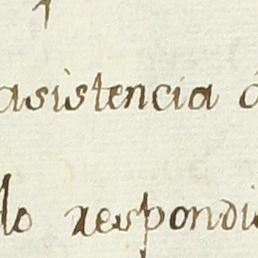 asistencia
lo respondi